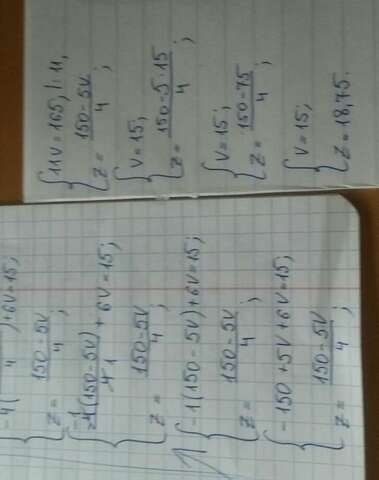 -4( 4 )+6V=15;
z = 150-5V / 4 ;
-4(150-5V) / 4 + 6V = 15;
z = 150-5V / 4 ;
-1(150-5V)+6V=15;
z = 150-5V / 4 ;
-150+5V+6V=15;
z = 150-5V / 4 ;
11V=165, |:11,
z = 150-5V / 4 ;
V=15;
z = 150-5·15 / 4 ;
V=15;
z = 150-75 / 4 ;
V=15;
z = 18,75.